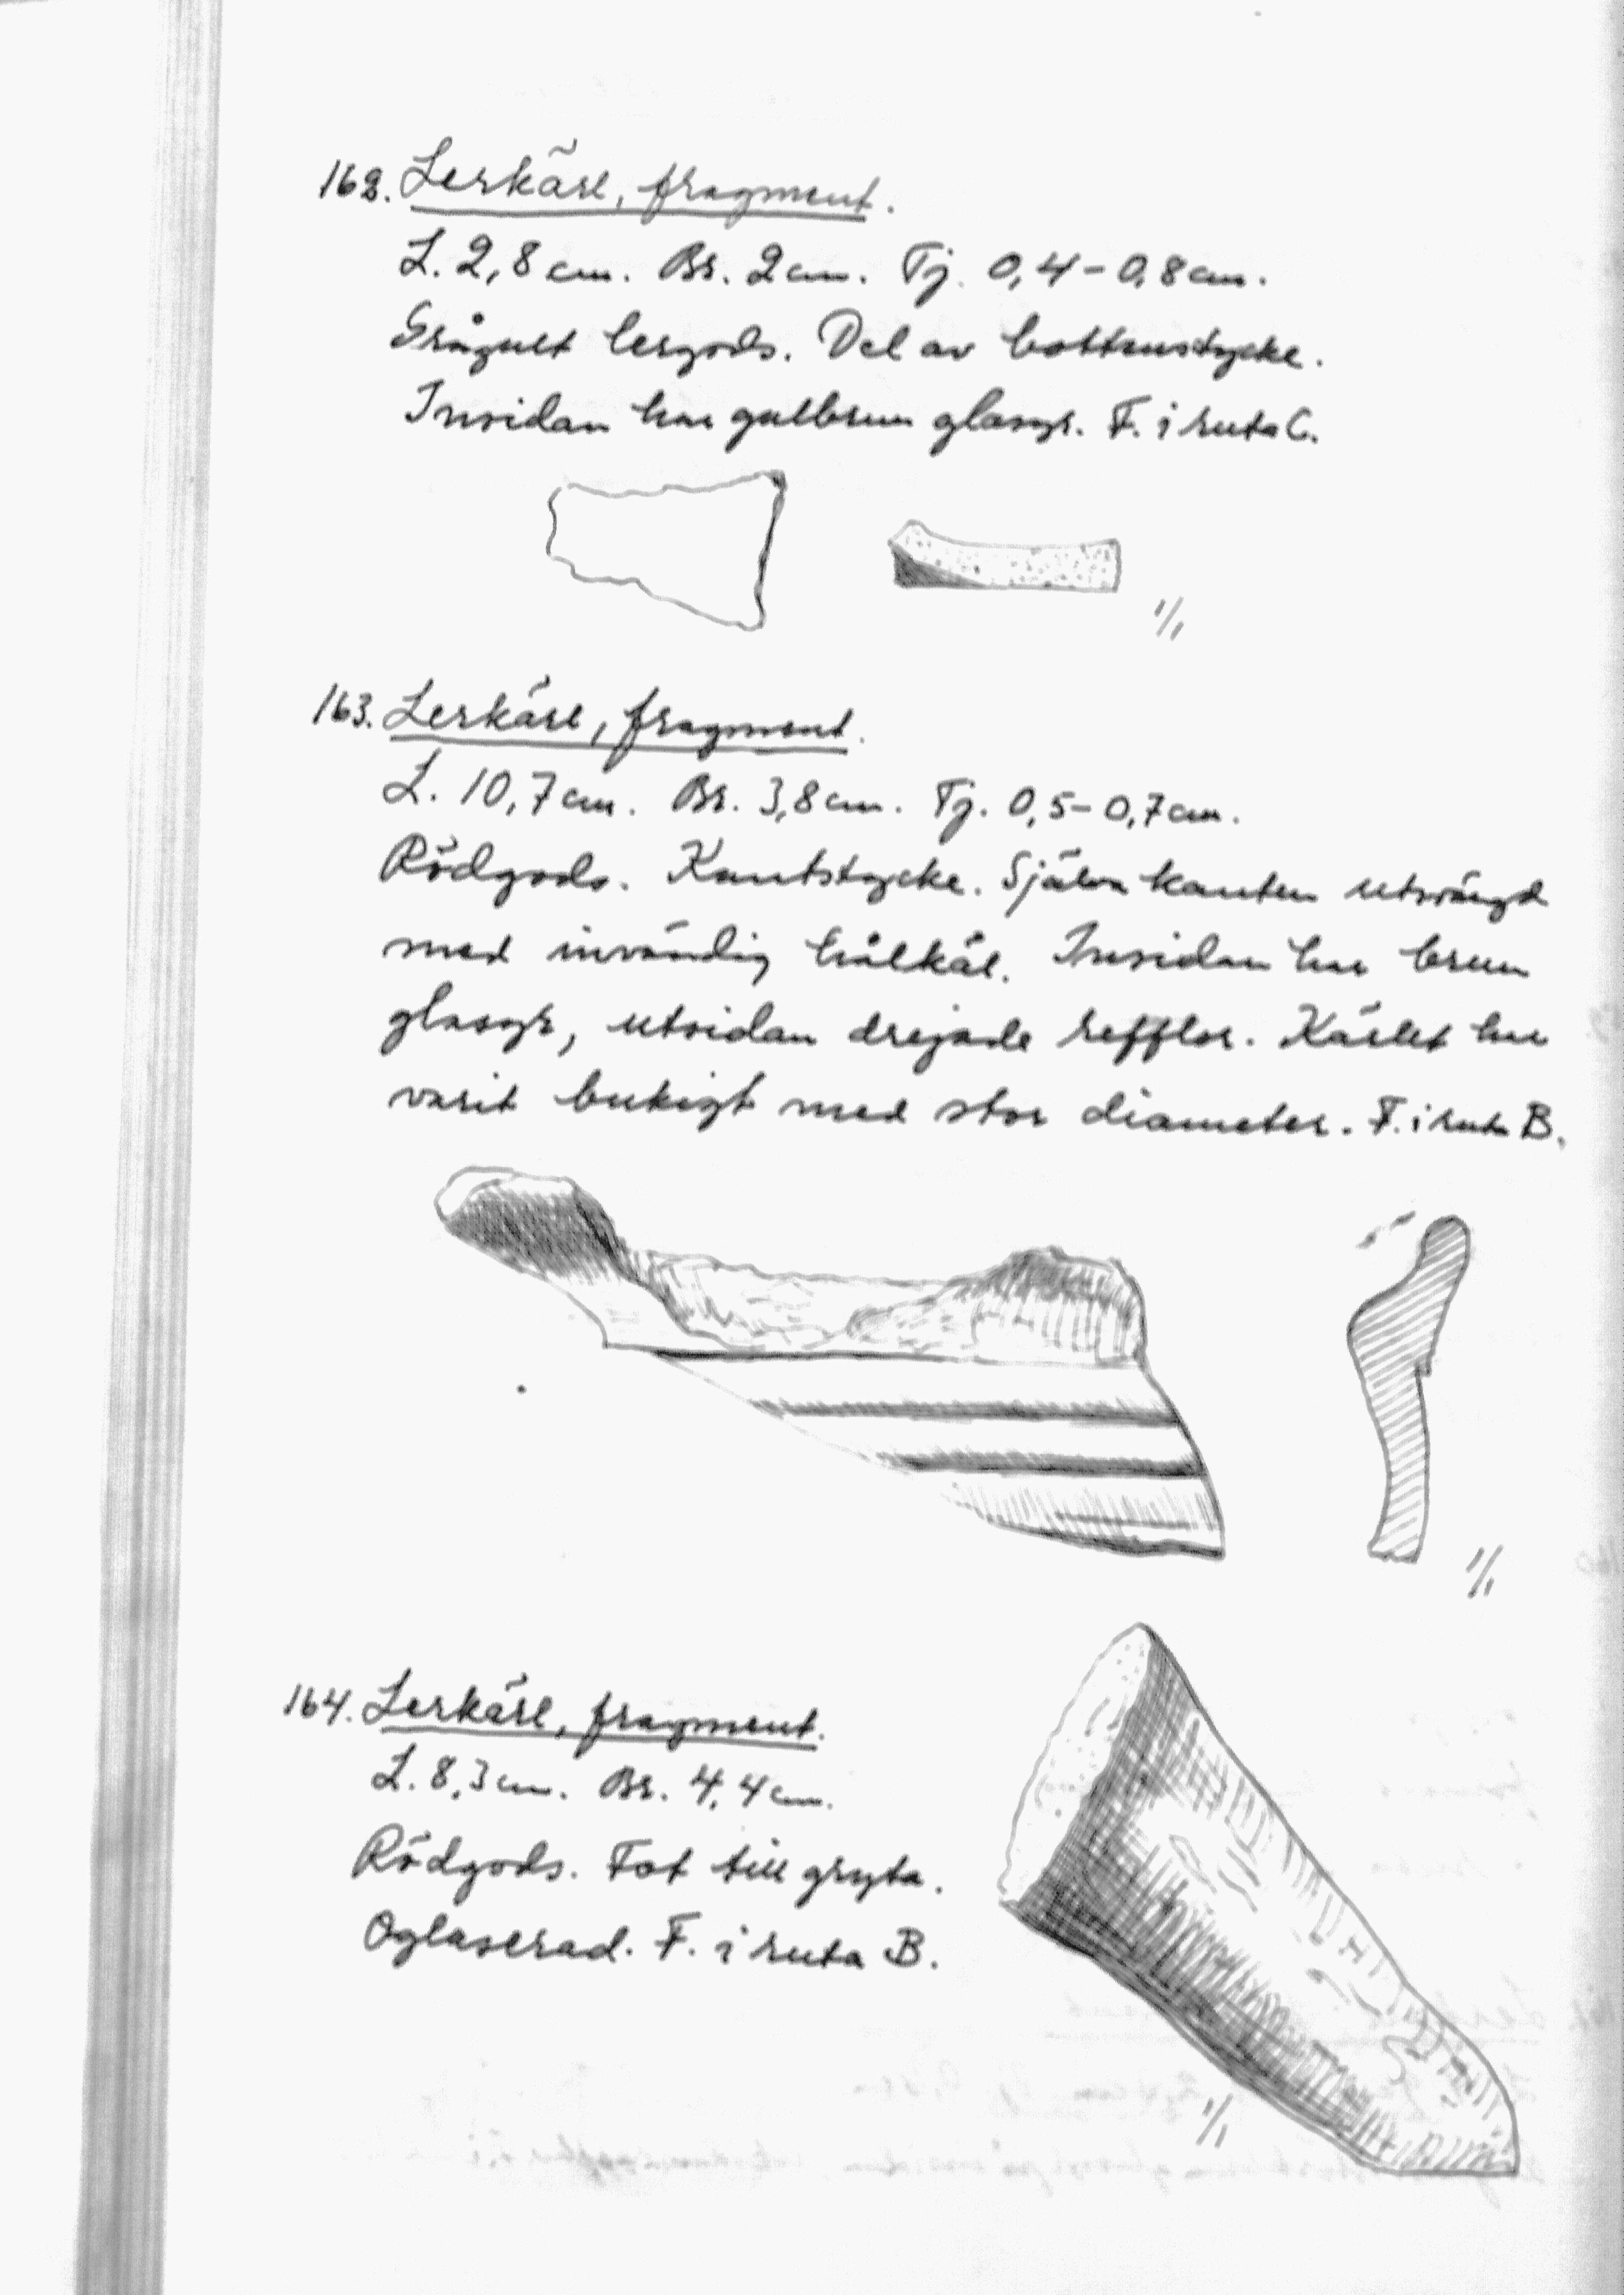 162. Lerkärl, fragment.
L. 2,8 cm. Br. 2 cm. Tj. 0,4-0,8 cm.
Grågult lergods. Del av bottenstycke.
Insidan har gulbrun glasyr. F. i ruta C.
1/1
163. Lerkärl, fragment.
L. 10,7 cm. Br. 3,8 cm. Tj. 0,5-0,7 cm.
Rödgods. Kantstycke. Själva kanten utsvängd
med invändig hålkäl. Insidan har brun
glasyr, utsidan drejade refflor. Kärlet har
varit bukigt med stor diameter. F. i ruta B.
1/1
164. Lerkärl, fragment.
L. 8,3 cm. Br. 4,4 cm.
Rödgods. Fot till gryta.
Oglaserad. F. i ruta B.
1/1